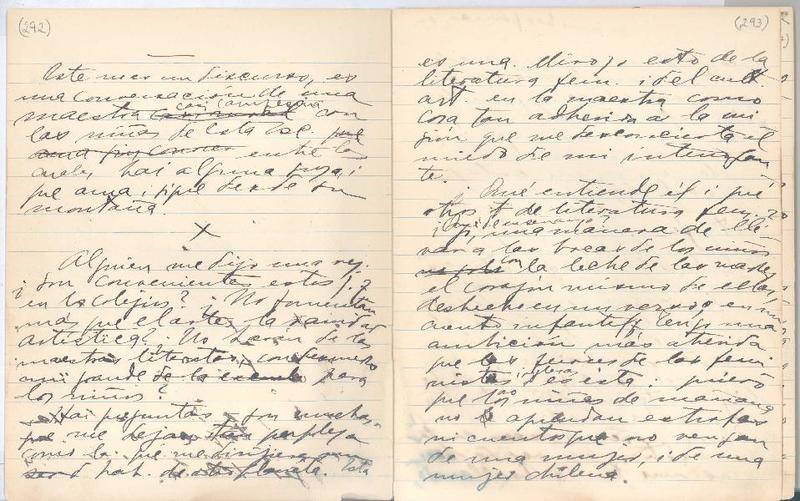 (292)
Este no es un discurso, es
una conversación de una
maestra casi campesina con
las niñas de esta Esc.
entre las
cuales hai alguna suya, i
que ama, i sigue desde su
montaña.
X
Alguien me dijo una vez:
¿Son convenientes estos j.
en los colejios? ¿No fomentan
mas que el arte, la vanidad
artística? ¿No seran de las
maestras literatas,
mui grande de la escuela para
los niños?
Hai preguntas, son muchas,
que me dejan perpleja
como la que me dirijiera un
ser d hab. de otro planeta. Esta
(293)
es una. Miro yo esto de la
literatura fem. i del cult.
art. en la maestra como
cosa tan adherida a la mi
sión que me desconcierta el
miedo de mi
te.
¿Qué entiende él i qué
otros de literatura fem.?
una manera de lle
var a las bocas de los niños
con la leche de las madres
el corazon mismo de ellas,
deshecho en un verso o en un
cuento infantil. Tengo una
ambición más atrevida
que las de las femi
nistas inglesas i es ésta: quiero
que los niños de mañana
no aprendan estrofas
ni cuentos que no vengan
de una mujer, i de una
mujer chilena.